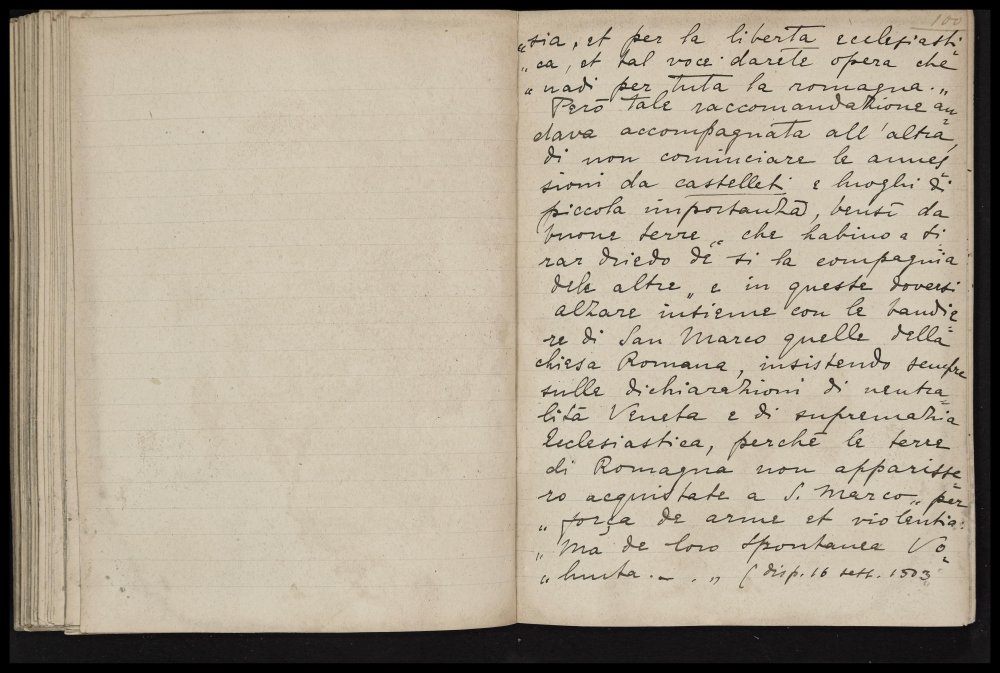 100
„sia, et per la libertà ecclesiasti-
„ca, et tal voce darete opera che
„nadi per tuta la romagna.„
Però tale raccomandazione an-
dava accompagnata all'altra,
di non cominciare le annes-
sioni da castelleti e luoghi di
piccola importanza, bensì da
buone terre „che habino a ti-
rar driedo de si la compagnia
dele altre„ e in queste doversi
alzare insieme con le bandie-
re di San Marco quelle della
chiesa Romana, insistendo sempre
sulle dichiarazioni di neutra-
lità Veneta e di supremazia
Ecclesiastica, perchè le terre
di Romagna non apparisse-
ro acquistate a S. Marco „per
„força de arme et violentia:
„Ma de loro spontanea Vo-
„lunta. – .„ (disp. 16 sett. 1503